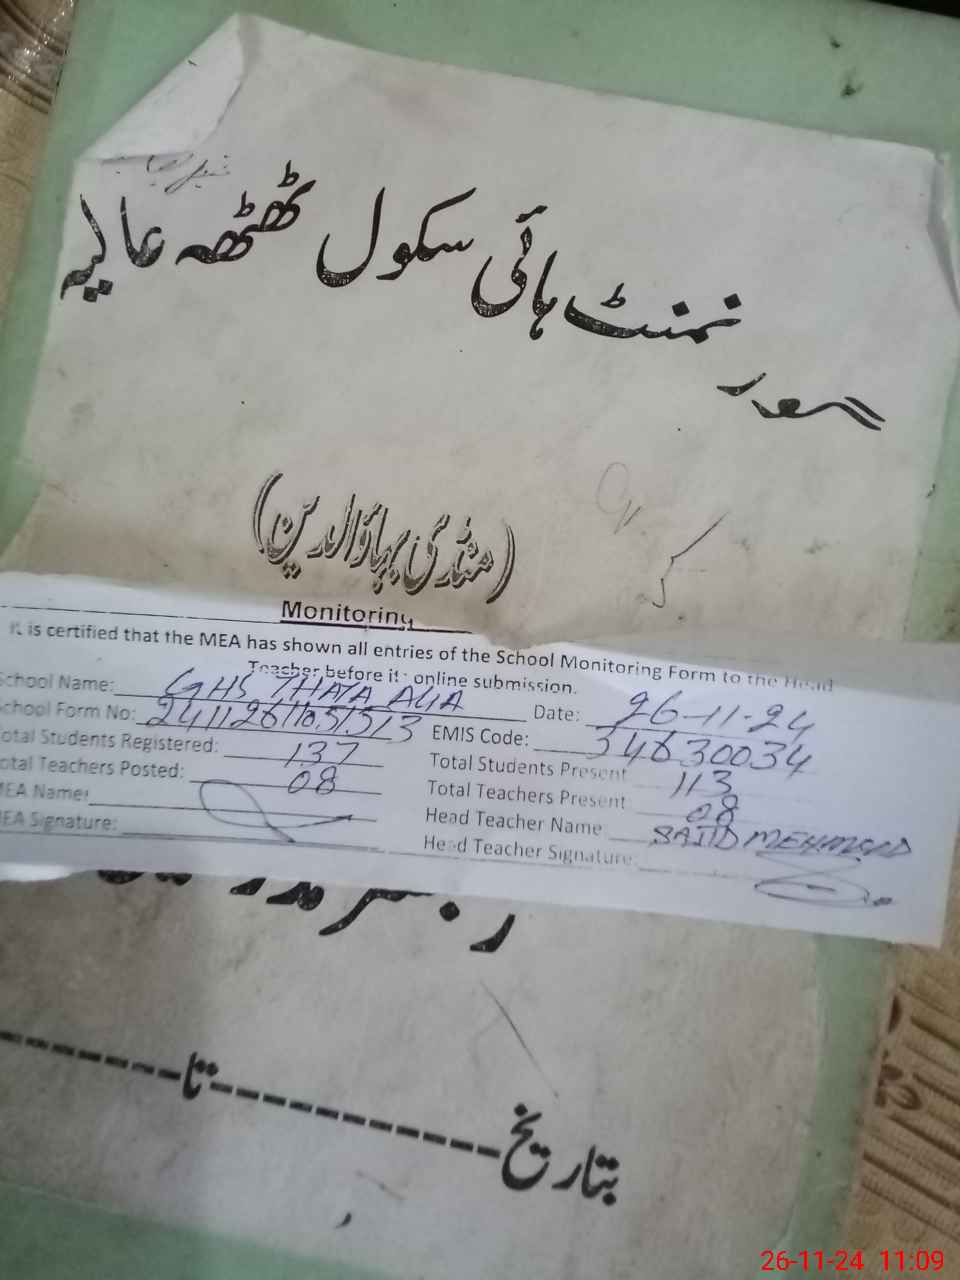 گورنمنٹ ہائی سکول ٹھٹھہ عالیہ
(منڈی بہاؤالدین)
Monitoring
It is certified that the MEA has shown all entries of the School Monitoring Form to the Head
Teacher before it's online submission.
School Name: GHS THATA ALIA Date: 26-11-24
School Form No: EMIS Code: 34630034
Total Students Registered: 137 Total Students Present 113
Total Teachers Posted: 08 Total Teachers Present 08
MEA Name: Head Teacher Name SAJID MEHMOOD
MEA Signature: Head Teacher Signature:
بتاریخ ---------------- تا ----------------
26-11-24 11:09